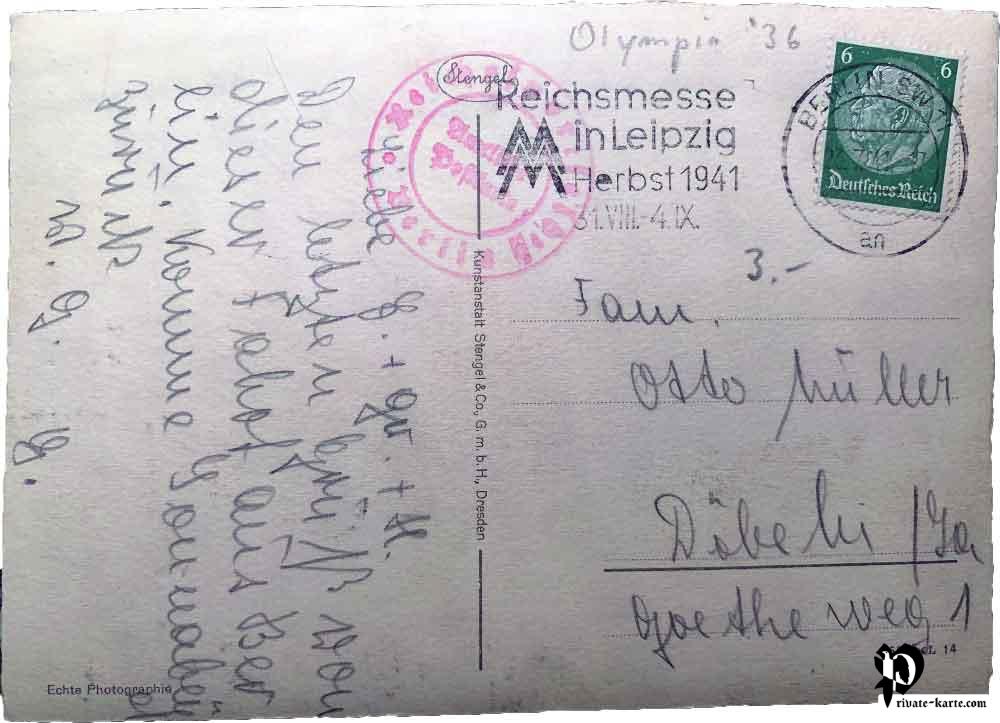 Olympia '36
6 6
Deutsches Reich
BERLIN SW
an
Stengel
Reichsmesse
in Leipzig
Herbst 1941
31.VIII.-4.IX.
Berlin
3.-
Fam.
Otto Müller
Döbeln /Sa
Goetheweg 1
14
Liebe E. + Gr. + H.
Den letzten Gruß von
dieser Fahrt aus Ber
lin. Komme Sonnabend
zurück
Kunstanstalt Stengel & Co., G. m. b. H., Dresden
Echte Photographie
private-karte.com